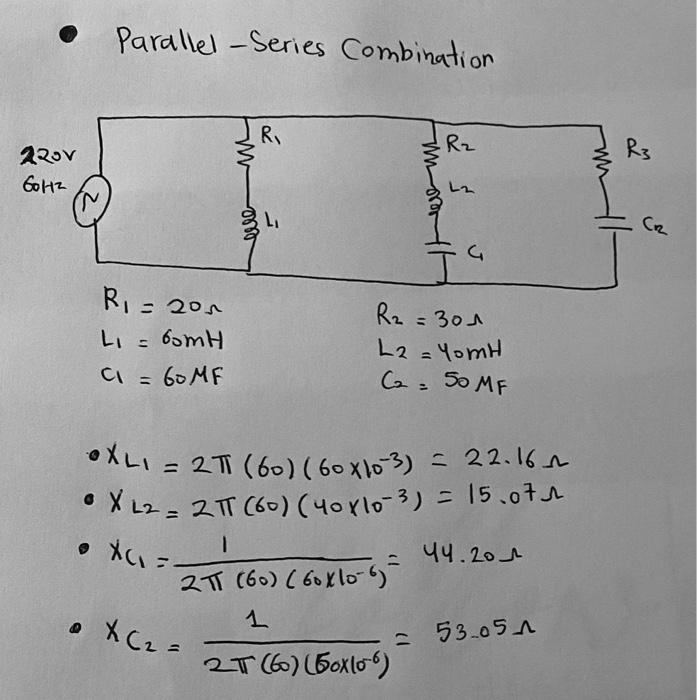 • Parallel - Series Combination
220V
60Hz
R1
L1
R2
L2
C1
R3
C2
R1 = 20Ω
L1 = 60mH
C1 = 60MF
R2 = 30Ω
L2 = 40mH
C2 = 50MF
• XL1 = 2π (60) (60x10-3) = 22.16Ω
• XL2 = 2π (60) (40x10-3) = 15.07Ω
• XC1 = 1 / 2π (60) (60x10-6) = 44.20Ω
• XC2 = 1 / 2π (60) (50x10-6) = 53.05Ω